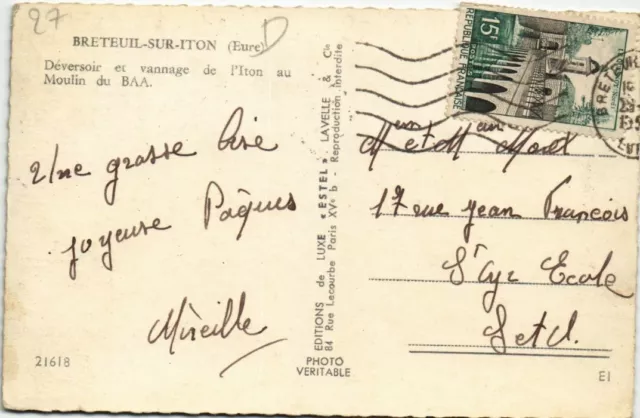 27
D
BRETEUIL-SUR-ITON (Eure)
Déversoir et vannage de l'Iton au
Moulin du BAA.
Une grosse bise
joyeuse Pâques
Mireille
21618
EDITIONS de LUXE "ESTEL", LAVELLE & Cie
84 Rue Lecourbe Paris XVe b - Reproduction interdite
PHOTO
VERITABLE
15F
REPUBLIQUE FRANÇAISE
BRETEUIL
M et M
17 rue Jean François
St Cyr Ecole
S et O.
E1